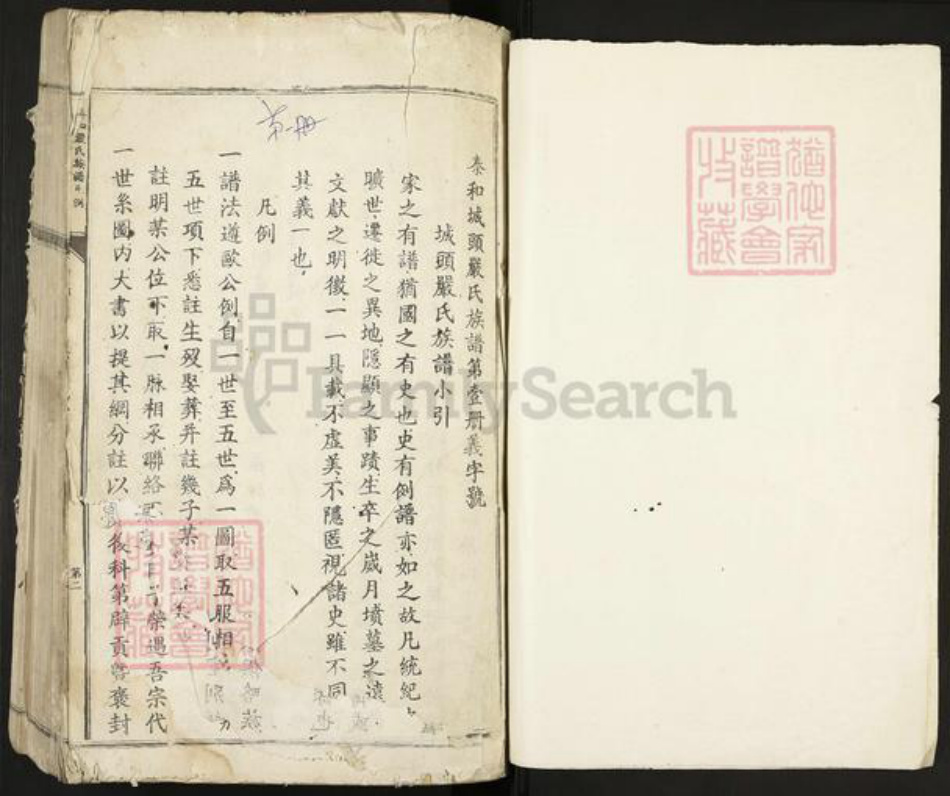 泰和城頭嚴氏族譜第壹册義字號
城頭嚴氏族譜小引
家之有譜猶國之有史也史有例譜亦如之故凡統紀之
曠世遷徙之異地隱顯之事蹟生卒之歲月墳墓之遠
文獻之明徵一一具載不虛美不隱匿視諸史雖不同
其義一也
凡例
一譜法遵歐公例自一世至五世爲一圖取五服相
五世項下悉註生歿娶葬并註幾子某
註明某公位下取一脉相承聯絡
榮遇吾宗代
一世系圖内大書以提其綱分註以
後科第辟貢暨褒封
第一册
嚴氏族譜
例
第二
猶他家譜學會收藏
猶他家譜學會收藏
FamilySearch